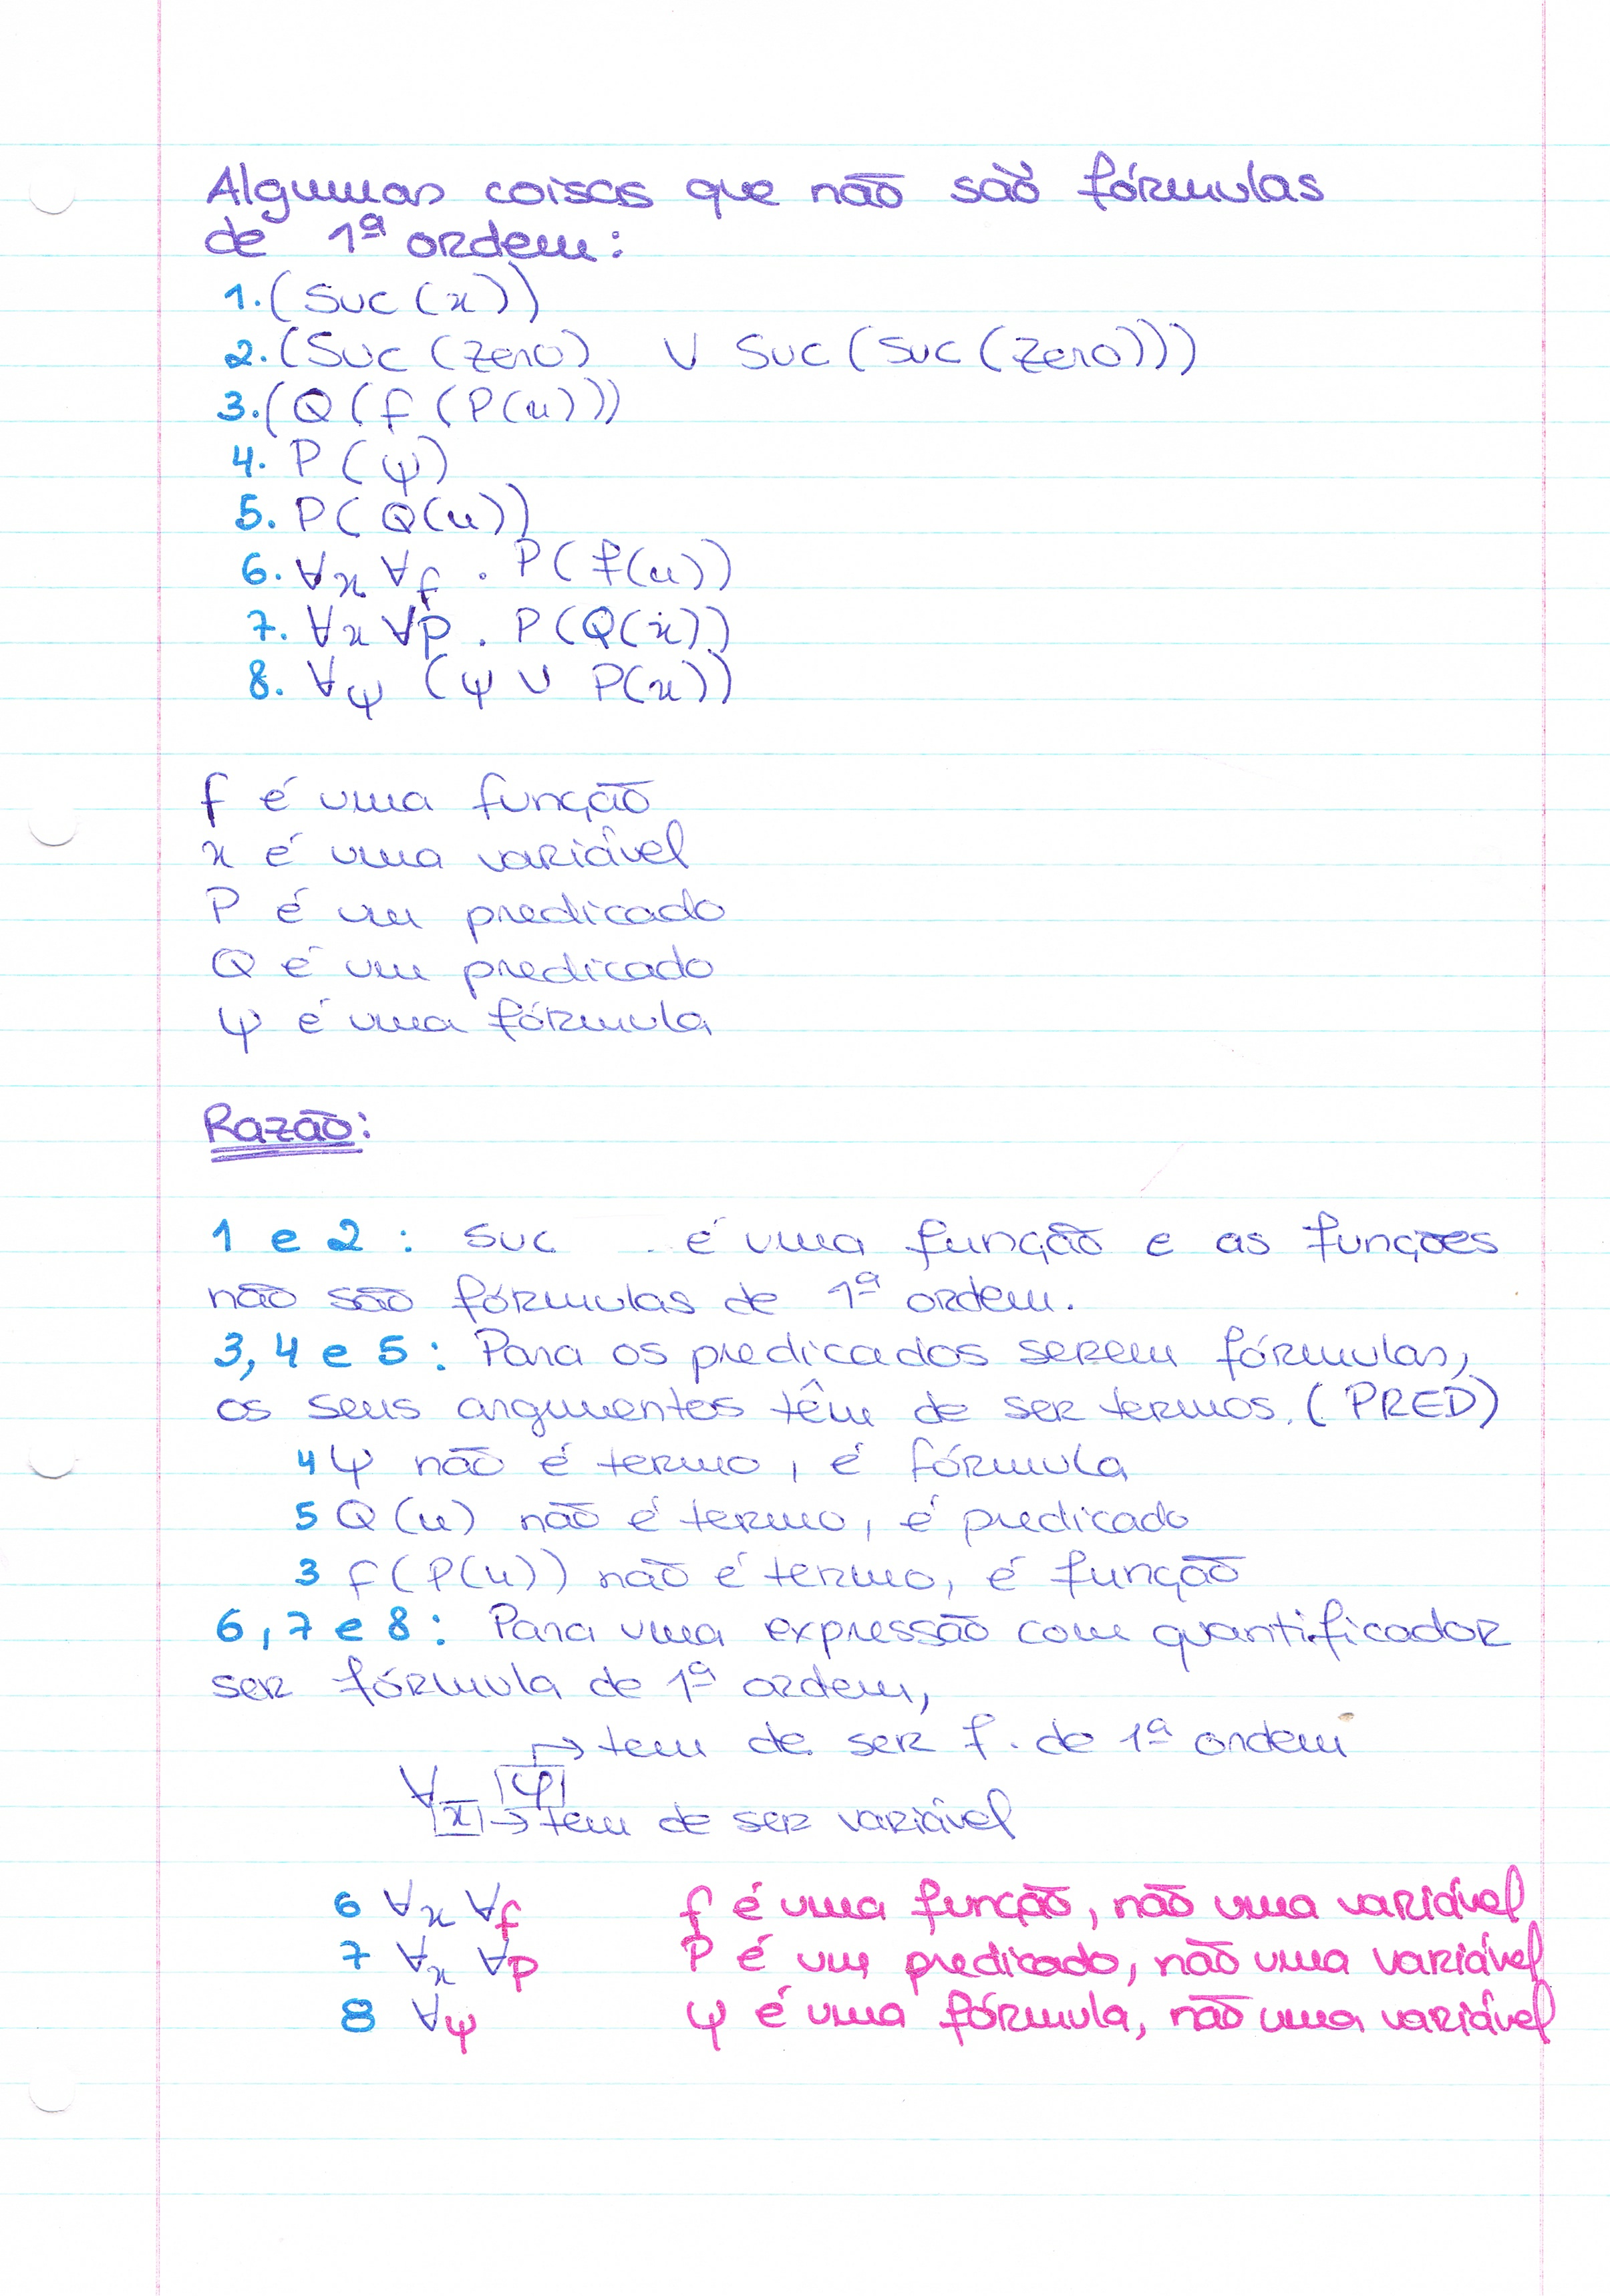 Algumas coisas que não são fórmulas
de 1ª ordem:
1. (Suc (x))
2. (Suc (Zero) ∨ Suc (Suc (Zero)))
3. (Q (f (P(x)))
4. P (ψ)
5. P( Q(x))
6. ∀x ∀f . P( f(x))
7. ∀x ∀p . P(Q(x))
8. ∀ψ (ψ ∨ P(x))
f é uma função
x é uma variável
P é um predicado
Q é um predicado
ψ é uma fórmula
Razão:
1 e 2 : Suc é uma função e as funções
não são fórmulas de 1ª ordem.
3, 4 e 5 : Para os predicados serem fórmulas,
os seus argumentos têm de ser termos. (PRED)
4 ψ não é termo, é fórmula
5 Q (x) não é termo, é predicado
3 f(P(x)) não é termo, é função
6, 7 e 8 : Para uma expressão com quantificador
ser fórmula de 1ª ordem,
→ tem de ser f. de 1ª ordem
∀ φ
x → tem de ser variável
6 ∀x ∀f f é uma função, não uma variável
7 ∀x ∀p P é um predicado, não uma variável
8 ∀ψ ψ é uma fórmula, não uma variável